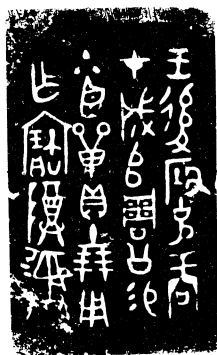 王後克商
才成𠂤周公易
小臣單貝十朋用
乍寶尊彝